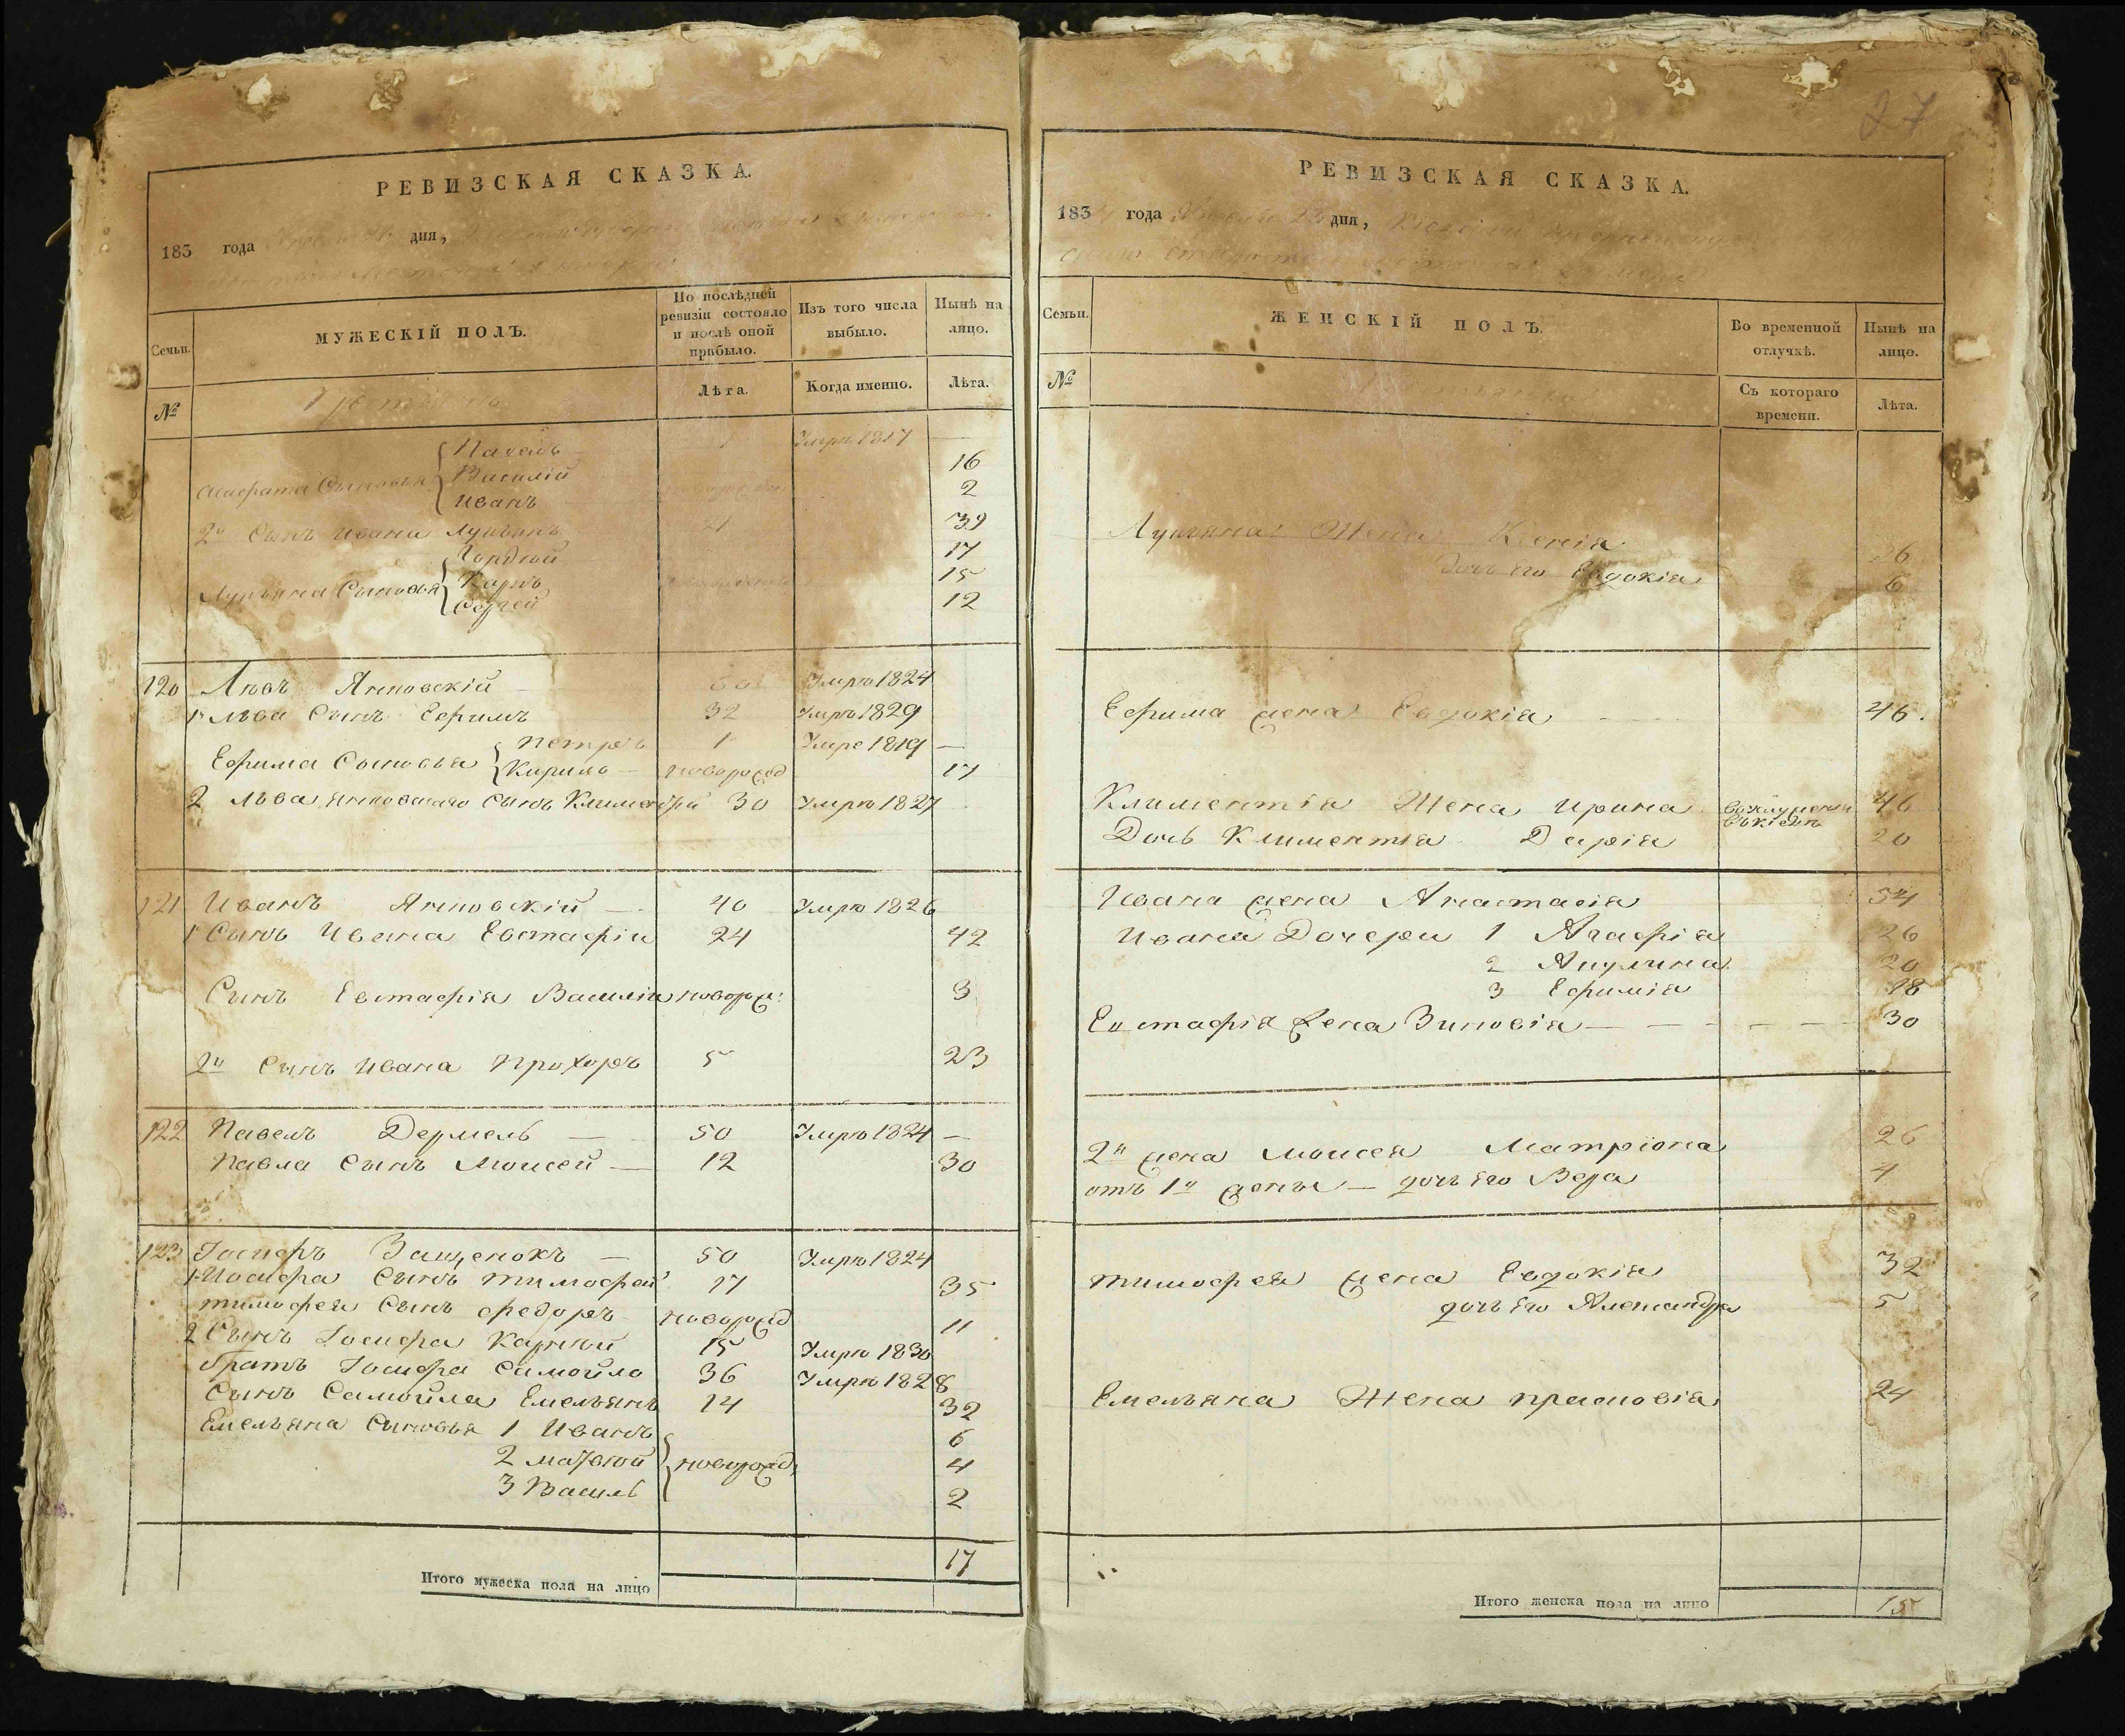 РЕВИЗСКАЯ СКАЗКА.
183 года дня,
Семьи.
МУЖЕСКІЙ ПОЛЪ.
По послѣдней ревизіи состояло и послѣ оной прибыло.
Изъ того числа выбыло.
Нынѣ на лицо.
№
Лѣта.
Когда именно.
Лѣта.
Павелъ 1 Умръ 1817 —
Сыновья Василій 16
Иванъ 2
2й Сынъ Ивана Лукьянъ 21 39
Гордѣй 17
Лукьяна Сыновья Карпъ 15
Сергей 12
120 Левъ Яновскій — 60 Умръ 1824
1й Льва Сынъ Ефимъ 32 Умръ 1829
Петръ 1 Умре 1819 —
Ефима Сыновья Кирило — новорожд 17
2 Льва Яновскаго Сынъ Климентій 30 Умръ 1827
121 Иванъ Яновскій — 40 Умръ 1826
1й Сынъ Ивана Евстафій 24 42
Сынъ Евстафія Василій новорож: 3
2й Сынъ Ивана Прохоръ 5 23
122 Павелъ Дермель — 50 Умръ 1824 —
Павла Сынъ Моисей — 12 30
123 Іосифъ Защенокъ — 50 Умръ 1824
1 Иосифа Сынъ Тимофей 17 35
Тимофея Сынъ Федоръ новорожд 11
2 Сынъ Іосифа Карпъ 15 Умръ 1830
братъ Іосифа Самойло 36 Умръ 1828
Сынъ Самойла Емельянъ 14 32
Емельяна Сыновья 1 Иванъ 6
2 Матвей новорожд, 4
3 Василь 2
17
Итого мужеска пола на лицо
27
РЕВИЗСКАЯ СКАЗКА.
1834 года дня,
Семьи.
ЖЕНСКІЙ ПОЛЪ.
Во временной отлучкѣ.
Нынѣ на лицо.
№
Съ котораго времени.
Лѣта.
Лукьяна Жена Ксенія 36
Дочь его Евдокія 6
Ефима жена Евдокія 46.
Климентія Жена Ирина 46
Дочь Климентія Дарія 20
Ивана жена Анастасія 54
Ивана Дочери 1 Агафія 26
2 Акулина 20
3 Ефимія 18
Евстафія жена Зиновія — — — — — 30
2я жена Моисея Матріона 26
отъ 1й жены — дочь его Вера 4
Тимофея жена Евдокія 32
дочь его Александра 5
Емельяна Жена Прасковія 24
Итого женска пола на лицо 15